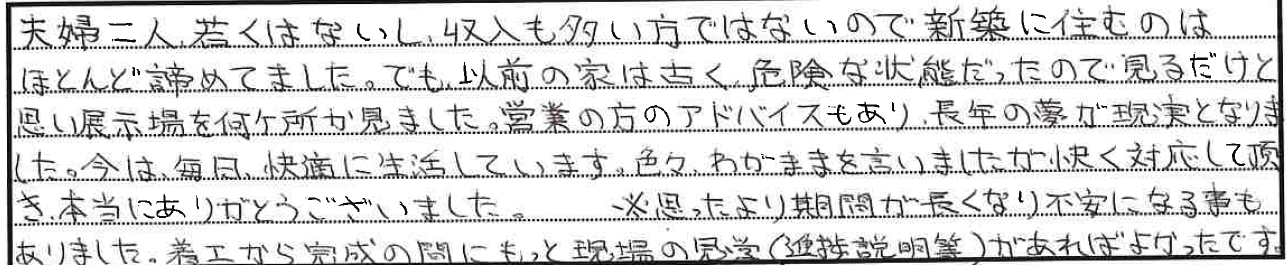 夫婦二人、若くはないし、収入も多い方ではないので新築に住むのは
ほとんど諦めてました。でも、以前の家は古く、危険な状態だったので見るだけと
思い展示場を何ケ所か見ました。営業の方のアドバイスもあり、長年の夢が現実となりま
した。今は、毎日、快適に生活しています。色々、わがままを言いましたが快く対応して頂
き、本当にありがとうございました。 ※思ったより期間が長くなり不安になる事も
ありました。着工から完成の間にもっと現場の見学(進捗説明等)があればよかったです